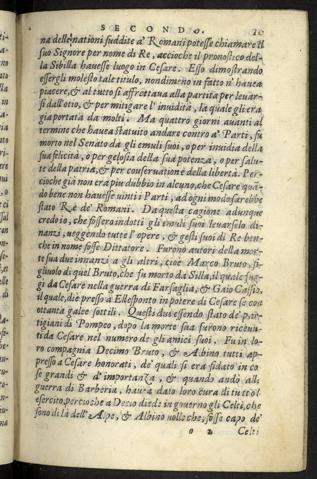 SECONDO. 20
na delle nationi suddite a' Romani potesse chiamare il
suo Signore per nome di Re, accioche il pronostico del-
la Sibilla havesse luogo in Cesare. Esso dimostrando
essergli molesto tale titulo, nondimeno in fatto n' havea
piacere, & al tutto si affrettava alla partita per levar
si dall'otio, & per mitigare l' invidia, la quale gli era
gia portata da molti. Ma quattro giorni avanti al
termine che havea statuito andare contro a' Parti, fu
morto nel Senato da gli emuli suoi, o per invidia della
sua felicità, o per gelosia della sua potenza, o per salu-
te della patria, & per conservatione della libertà. Per-
cioche già non era piu dubbio in alcuno, che Cesare quan-
do bene non havesse vinti i Parti, ad ogni modo sarebbe
stato Re de' Romani. Da questa cagione adunque
credo io, che fossero indotti gli emuli suoi levarselo di-
nanzi, veggendo tutte l' opere, & gesti suoi di Re ben-
che in nome fosse Dittatore. Furono autori della mor-
te sua due innanzi a gli altri, cioè Marco Bruto, fi-
gliuolo di quel Bruto, che fu morto da Silla, il quale fug-
gì da Cesare nella guerra di Farsaglia, & Gaio Cassio,
il quale, diè presso a Ellesponto in potere di Cesare se con
ottanta galee sottili. Questi due essendo stato de' par-
tigiani di Pompeo, dopo la morte sua furono ricevu-
ti da Cesare nel numero de gli amici suoi. Fu in lo-
ro compagnia Decimo Bruto, & Albino tutti ap-
presso a Cesare honorati, de' quali si era fidato in co
se grandi & d' importanza, & quando andò alla
guerra di Barberia, havea dato loro cura di tutto l
esercito, percioche a Decio diede in governo gli Celti, che
sono di là dell' Alpe, & Albino volle che, fosse capo de'
o 2 Celti